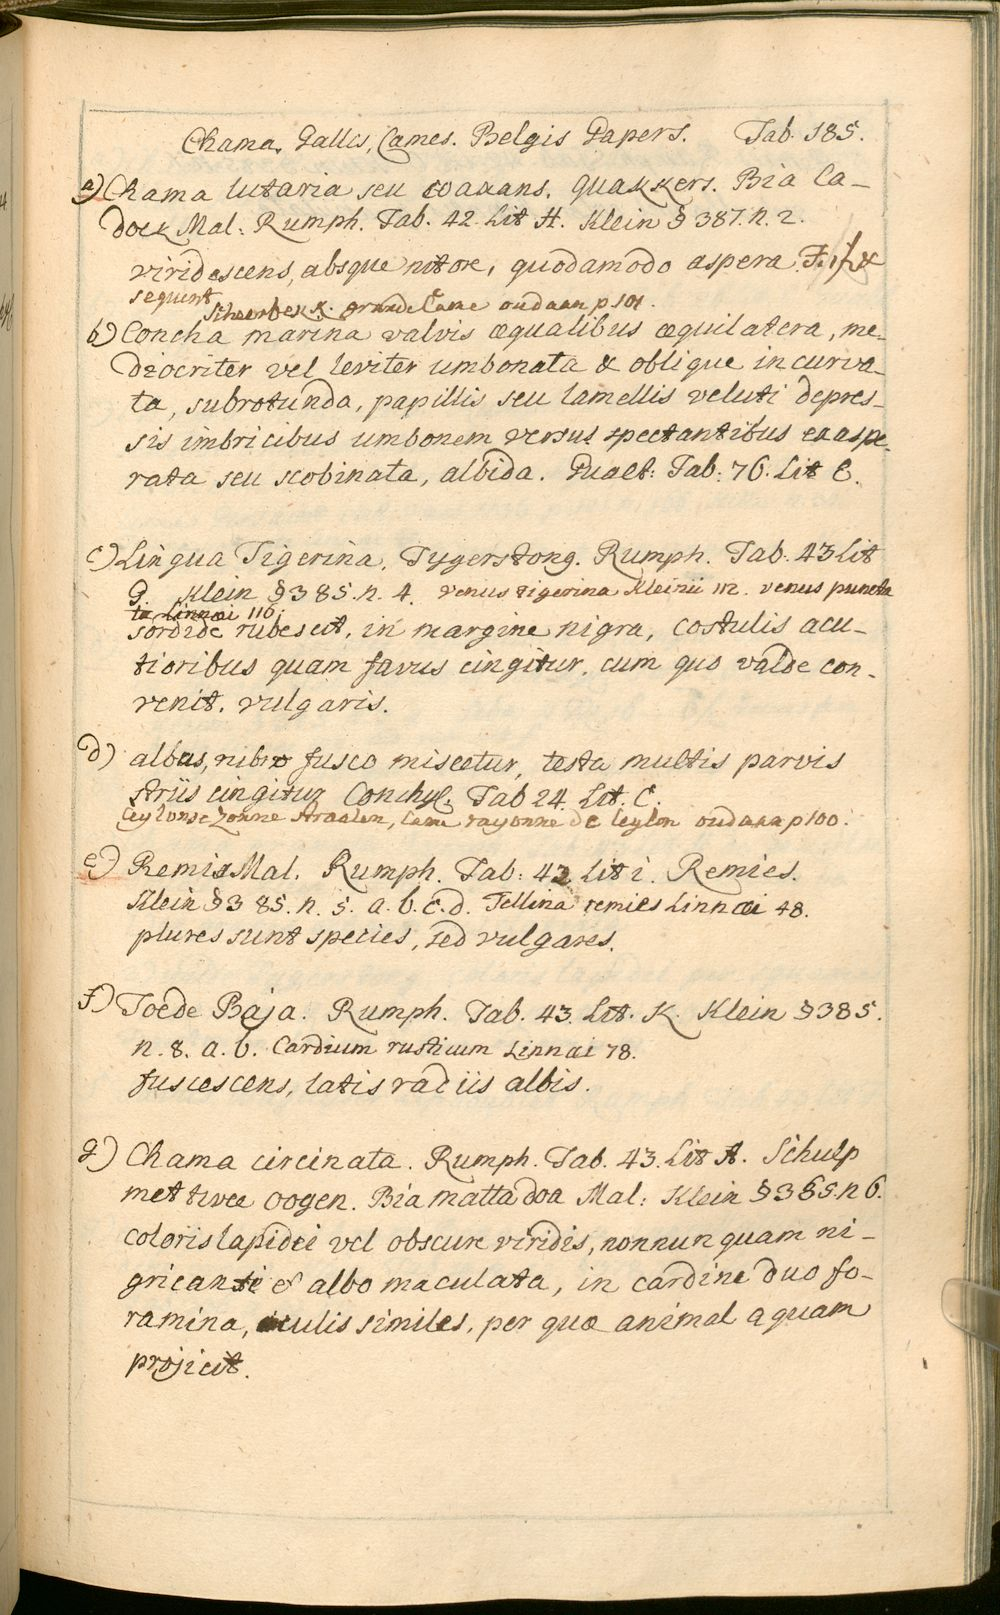 Chama, Gallis, Cames. Belgis Gapers. Tab. 185.
a) Chama lutaria seu coaxans. quakkers. Bia la-
dock Mal: Rumph. Tab. 42 Lit H. Klein § 387. n. 2.
viridescens, absque nitore, quodamodo aspera.
sequent Schoorbekk. grande Came oudaan p 101.
b) Concha marina valvis æqualibus æquilatera, me-
diocriter vel leviter umbonata & oblique incurva-
ta, subrotunda, papillis seu lamellis veluti depres-
sis imbricibus umbonem versus spectantibus exaspe-
rata seu scobinata, albida. Gualt: Tab: 76. Lit C.
c) Lingua Tigerina, Tygerstong. Rumph. Tab. 43 Lit
G. Klein § 385. n. 4. venus tigerina Kleinii 112. venus puncta
ta Linnæi 116.
sordide rubescit, in margine nigra, costulis acu-
tioribus quam favus cingitur, cum quo valde con-
venit. vulgaris.
d) albus, rubro fusco miscetur, testa multis parvis
striis cingitur Conchyl. Tab 24. Lit. C.
Ceylonse Zonne Straalen, Came rayonne de Ceylon oudaan p 100.
e) Remis Mal. Rumph. Tab: 42 Lit i. Remies.
Klein § 385. n. 5. a. b. c. d. Tellina remies Linnæi 48.
plures sunt species, sed vulgares.
f) Toede Baja. Rumph. Tab. 43. Lit. K. Klein § 385.
n. 8. a. b. Cardium rusticum Linnæi 78.
fuscescens, latis radiis albis.
g) Chama circinata. Rumph. Tab. 43. Lit A. Schulp
met twee oogen. Bia matta doa Mal: Klein § 365. n 6.
coloris lapidei vel obscure viridis, nonnunquam ni-
gricante & albo maculata, in cardine duo fo-
ramina, oculis similes, per quæ animal aquam
projicit.